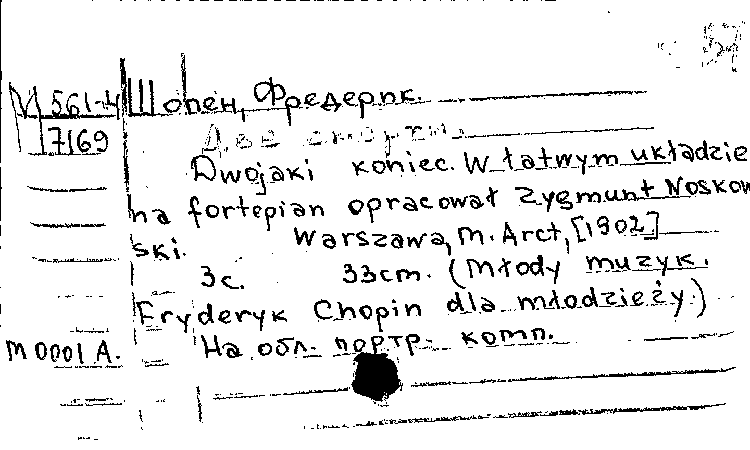 М 561-4 Шопен, Фредерик.
7169 Две смерти.
Dwojaki koniec. W łatwym układzie
na fortepian opracował Zygmunt Noskow
ski. Warszawa, M. Arct, [1902]
3 с. 33cm. (Młody muzyk.
Fryderyk Chopin dla młodzieży.)
М 0001 А. На обл. портр. комп.